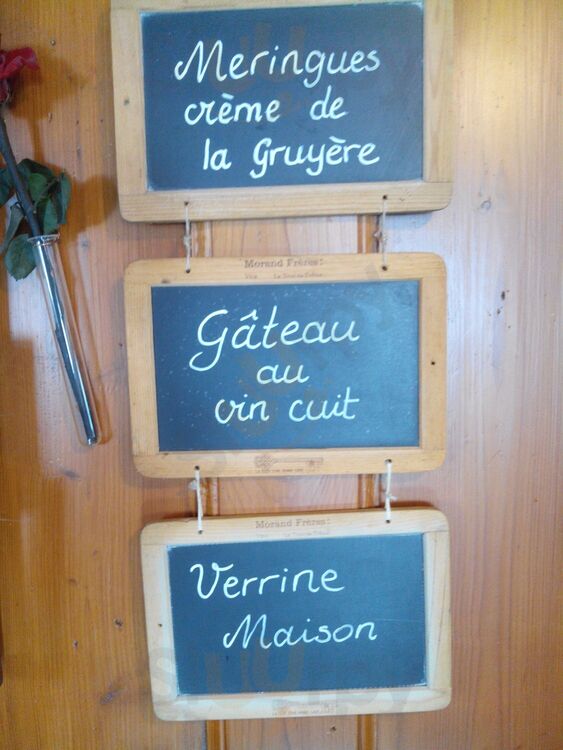 Meringues
crème de
la Gruyère
Morand Frères
Gâteau
au
vin cuit
Morand Frères
Verrine
Maison